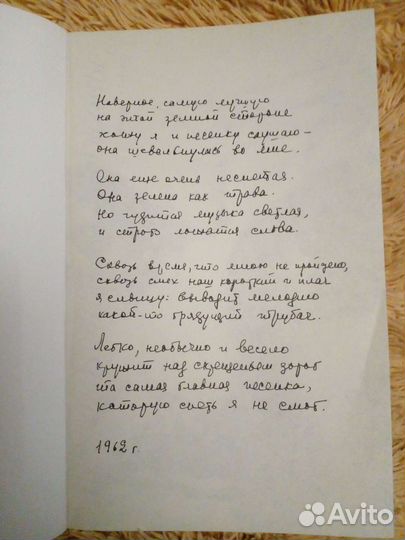 Наверное, самую лучшую
на этой земной стороне
хожу я и песенку слушаю –
она шевельнулась во мне.
Она еще очень неспетая.
Она зелена как трава.
Но чудится музыка светлая,
и строго ложатся слова.
Сквозь время, что мною не пройдено,
сквозь смех наш короткий и плач
я слышу: выводит мелодию
какой-то грядущий трубач.
Легко, необычно и весело
кружит над скрещеньем дорог
та самая главная песенка,
которую спеть я не смог.
1962 г.
Avito